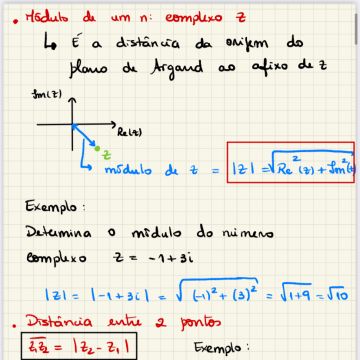 • Módulo de um n: complexo z
↳ É a distância da origem do
plano de Argand ao afixo de z
Im(z)
Re(z)
z
↳ módulo de z = |z| = √Re²(z) + Im²(z)
Exemplo:
Determina o módulo do número
complexo z = -1+3i
|z| = |-1+3i| = √(-1)² + (3)² = √1+9 = √10
• Distância entre 2 pontos
z₁z₂ = |z₂ - z₁|
Exemplo: